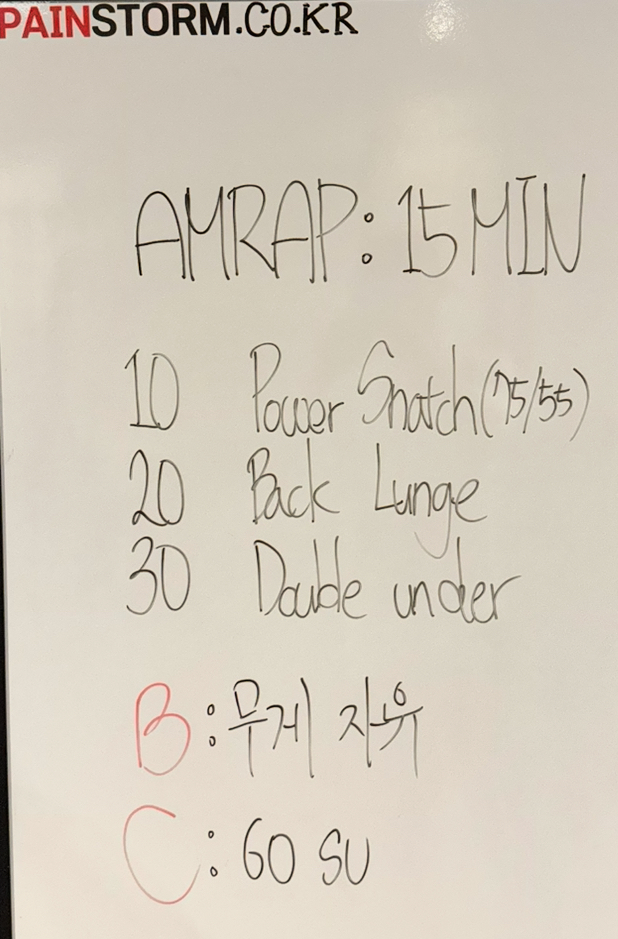 PAINSTORM.CO.KR
AMRAP: 15 MIN
10 Power Snatch (75/55)
20 Back Lunge
30 Double under
B: 무게 자유
C: 60 SU